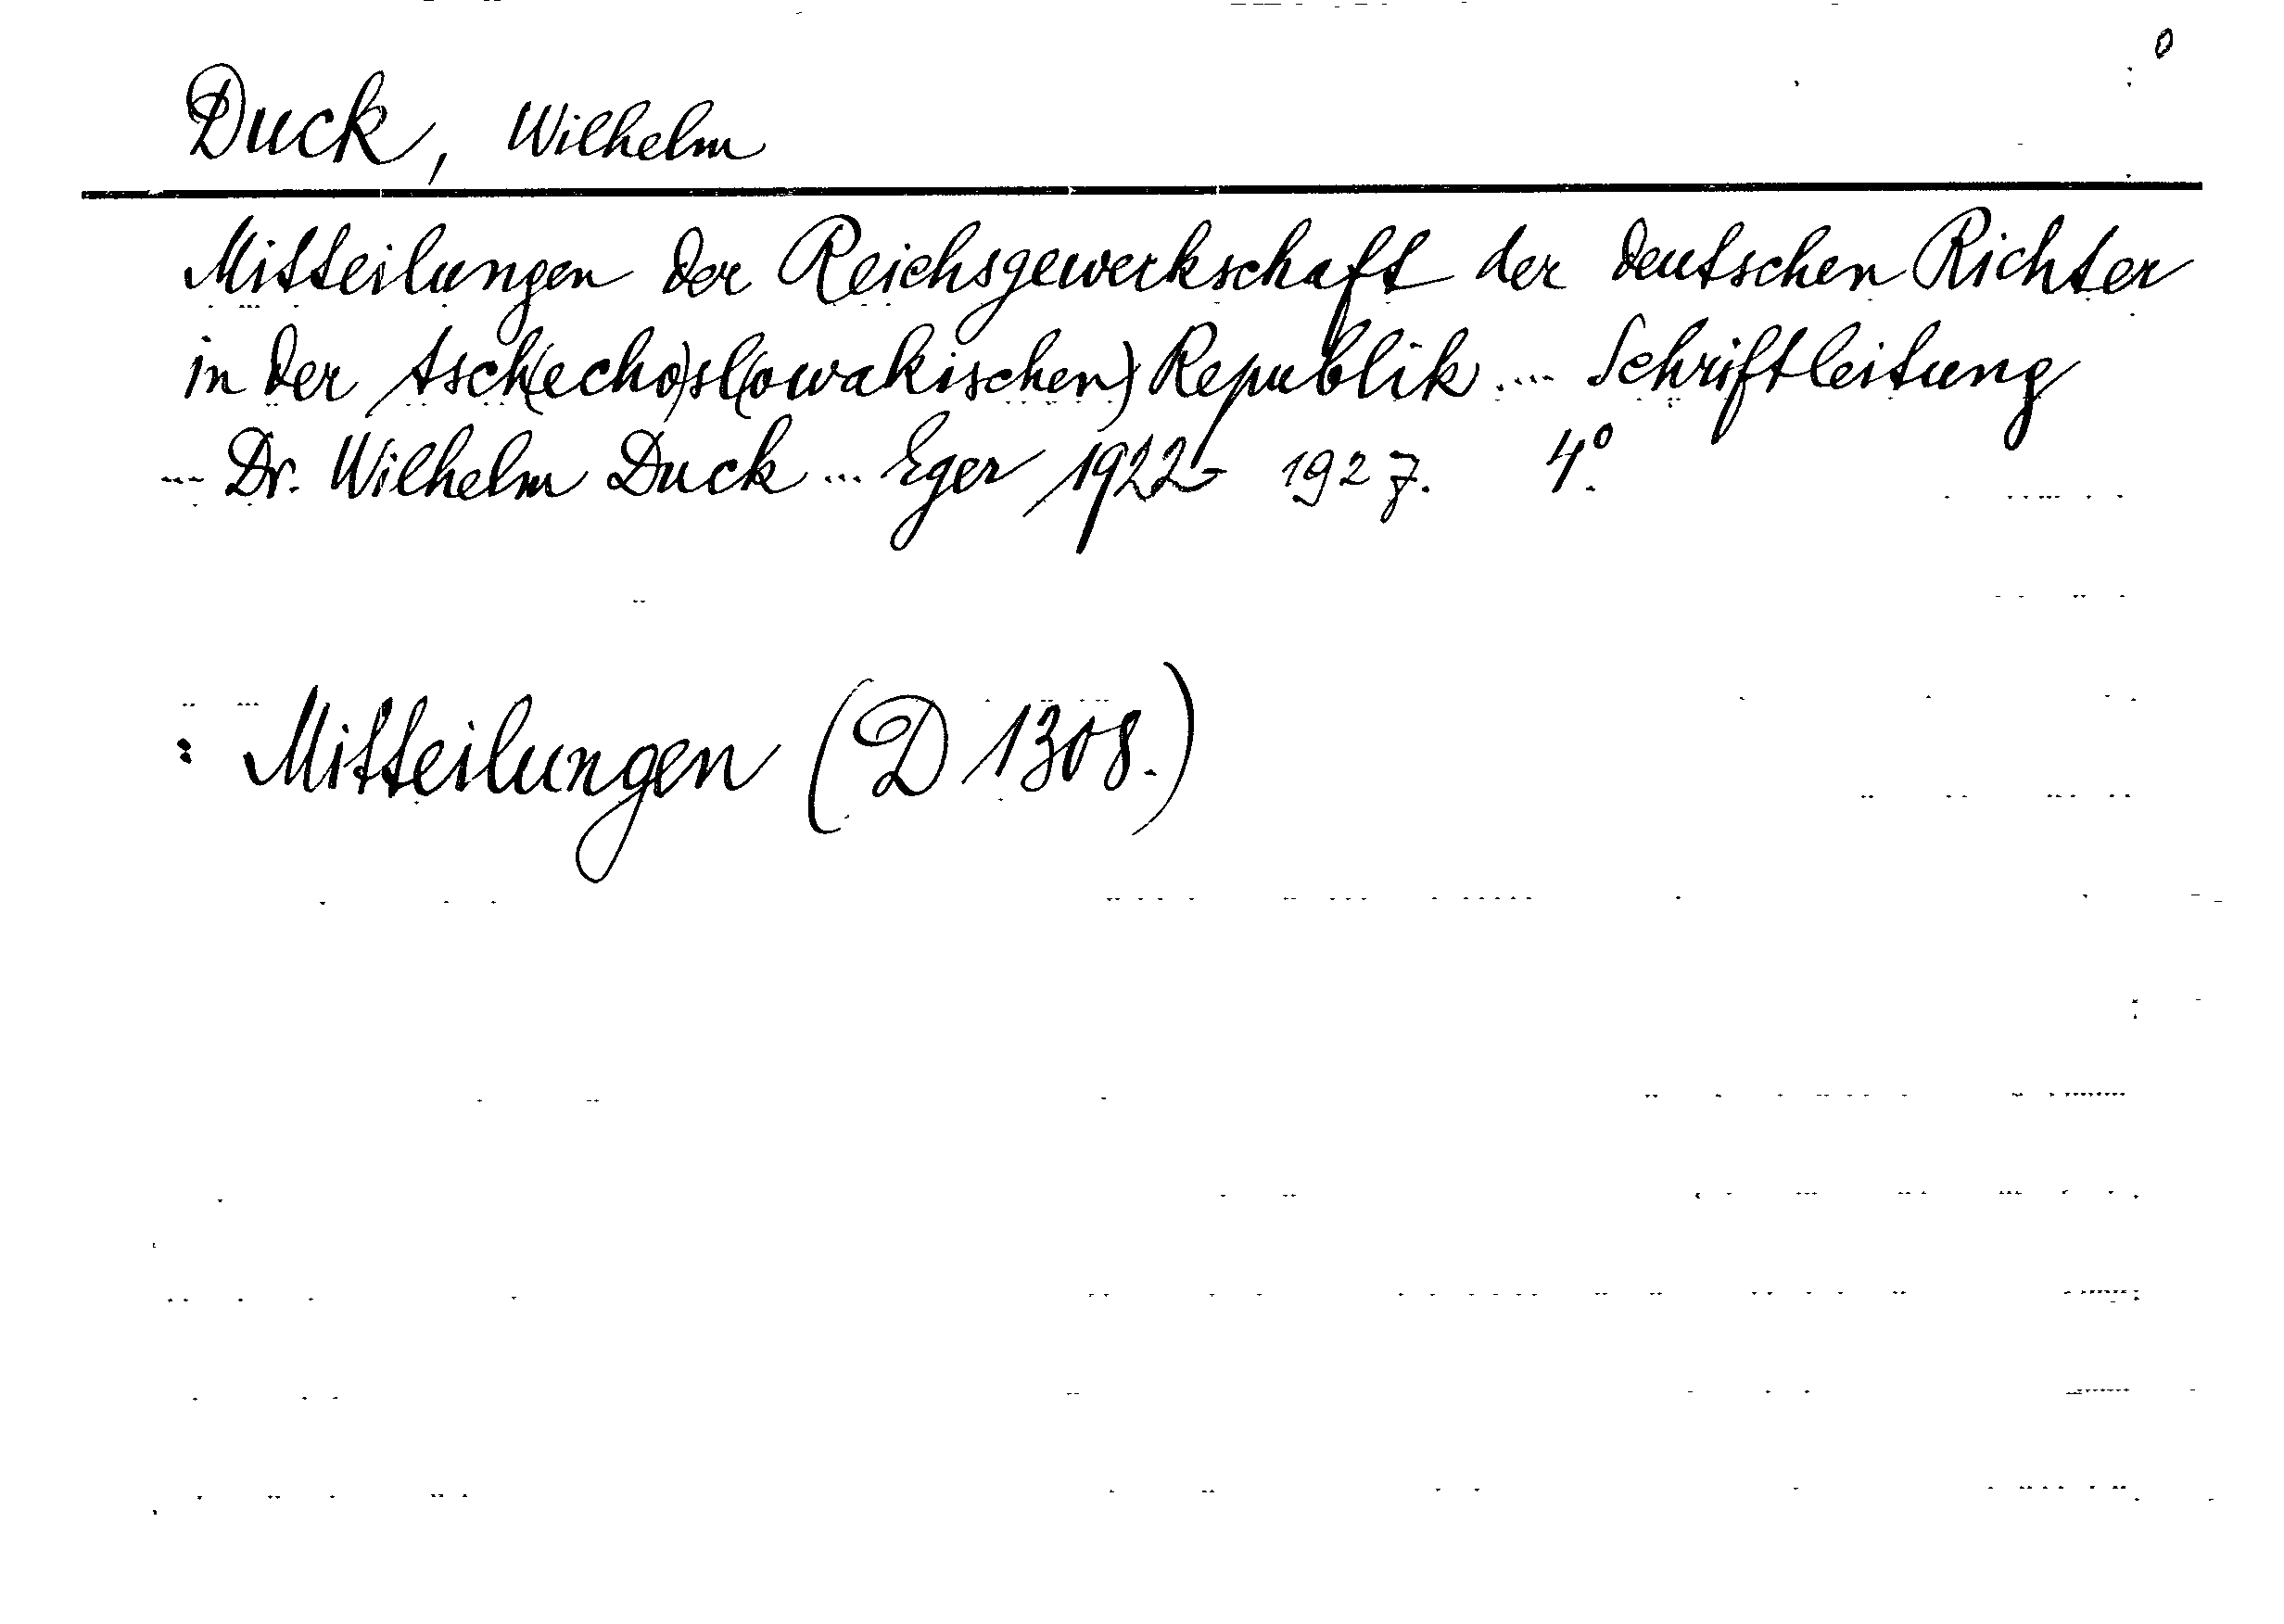 Duck, Wilhelm
Mitteilungen der Reichsgewerkschaft der deutschen Richter
in der tsch(echo)sl(owakischen) Republik.... Schriftleitung
... Dr. Wilhelm Duck ... Eger 1922- 1927. 4°.
: Mitteilungen (D 1308.)